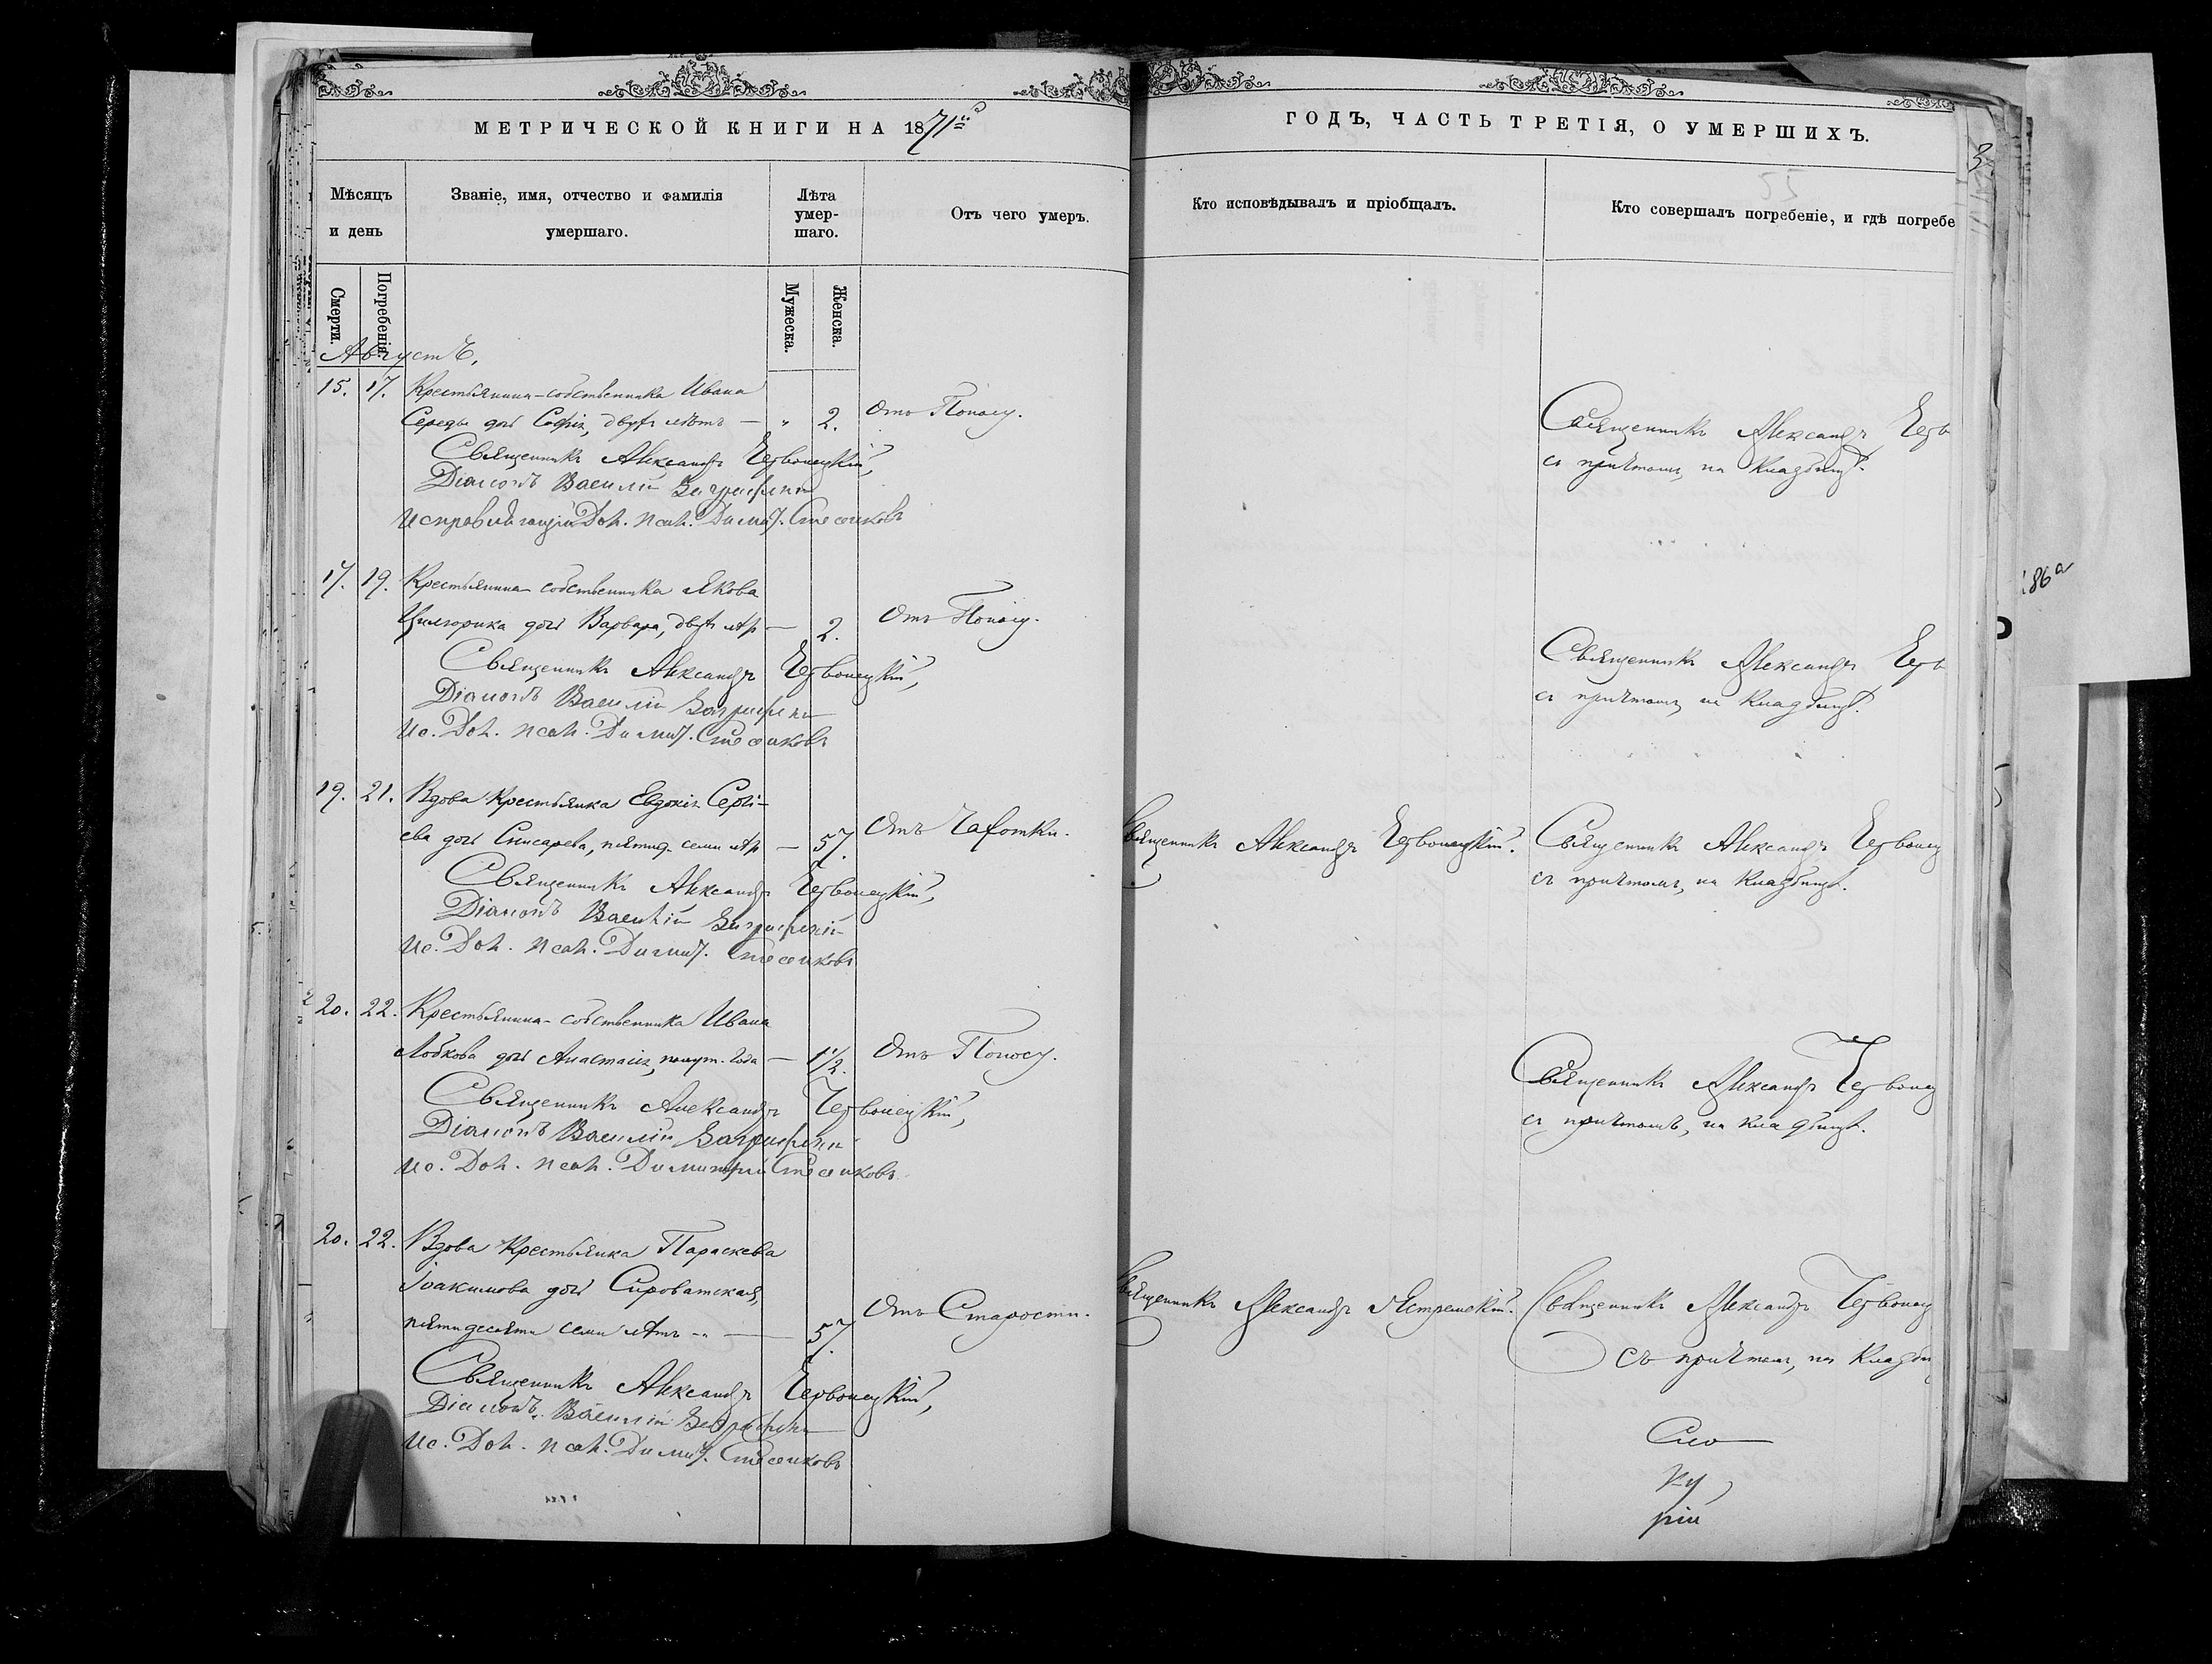 МЕТРИЧЕСКОЙ КНИГИ НА 1871й
ГОДЪ, ЧАСТЬ ТРЕТІЯ, О УМЕРШИХЪ.
Мѣсяцъ и день
Званіе, имя, отчество и фамилія умершаго.
Лѣта умер-шаго.
Отъ чего умеръ.
Кто исповѣдывалъ и пріобщалъ.
Кто совершалъ погребеніе, и гдѣ погребе
Смерти.
Погребенія.
Мужеска.
Женска.
Августъ,
15. 17. Крестьянина-собственника Ивана
Середы дочь Софія, двухъ лѣтъ — " 2. Отъ Поносу.
Священникъ Александръ Червонецкій,
Діаконъ Василій
Исправляющій Дол. псал. Димит.
Священникъ Александръ Черв
съ причтомъ, на кладбищѣ.
17. 19. Крестьянина собственника Якова
дочь Варвара, двухъ лѣтъ — 2. Отъ Поносу.
Священникъ Александръ Червонецкій,
Діаконъ Василій
Ис. Дол. псал. Димит.
Священникъ Александръ Черв
съ причтомъ, на кладбищѣ.
19. 21. Вдова Крестьянка Евдокія Сергі-
ева дочь Снисарева, пятид. семи лѣтъ — 57. Отъ Чахотки.
Священникъ Александръ Червонецкій,
Діаконъ Василій
Ис. Дол. псал. Димит.
Священникъ Александръ Червонецкій.
Священникъ Александръ Червонец
съ причтомъ, на кладбищѣ.
20. 22. Крестьянина-собственника Ивана
Лобкова дочь Анастасія, полут. года — 1½. Отъ Поносу.
Священникъ Александръ Червонецкій,
Діаконъ Василій
Ис. Дол. псал. Димитрій
Священникъ Александръ Червонец
съ причтомъ, на кладбищѣ.
20. 22. Вдова Крестьянка Параскева
Іоакимова дочь Сироватская,
пятидесяти семи лѣтъ — 57. Отъ Старости.
Священникъ Александръ Червонецкій,
Діаконъ Василій
Ис. Дол. псал. Димит.
Священникъ Александръ
Священникъ Александръ Червонец
съ причтомъ, на кладби
рій
86а